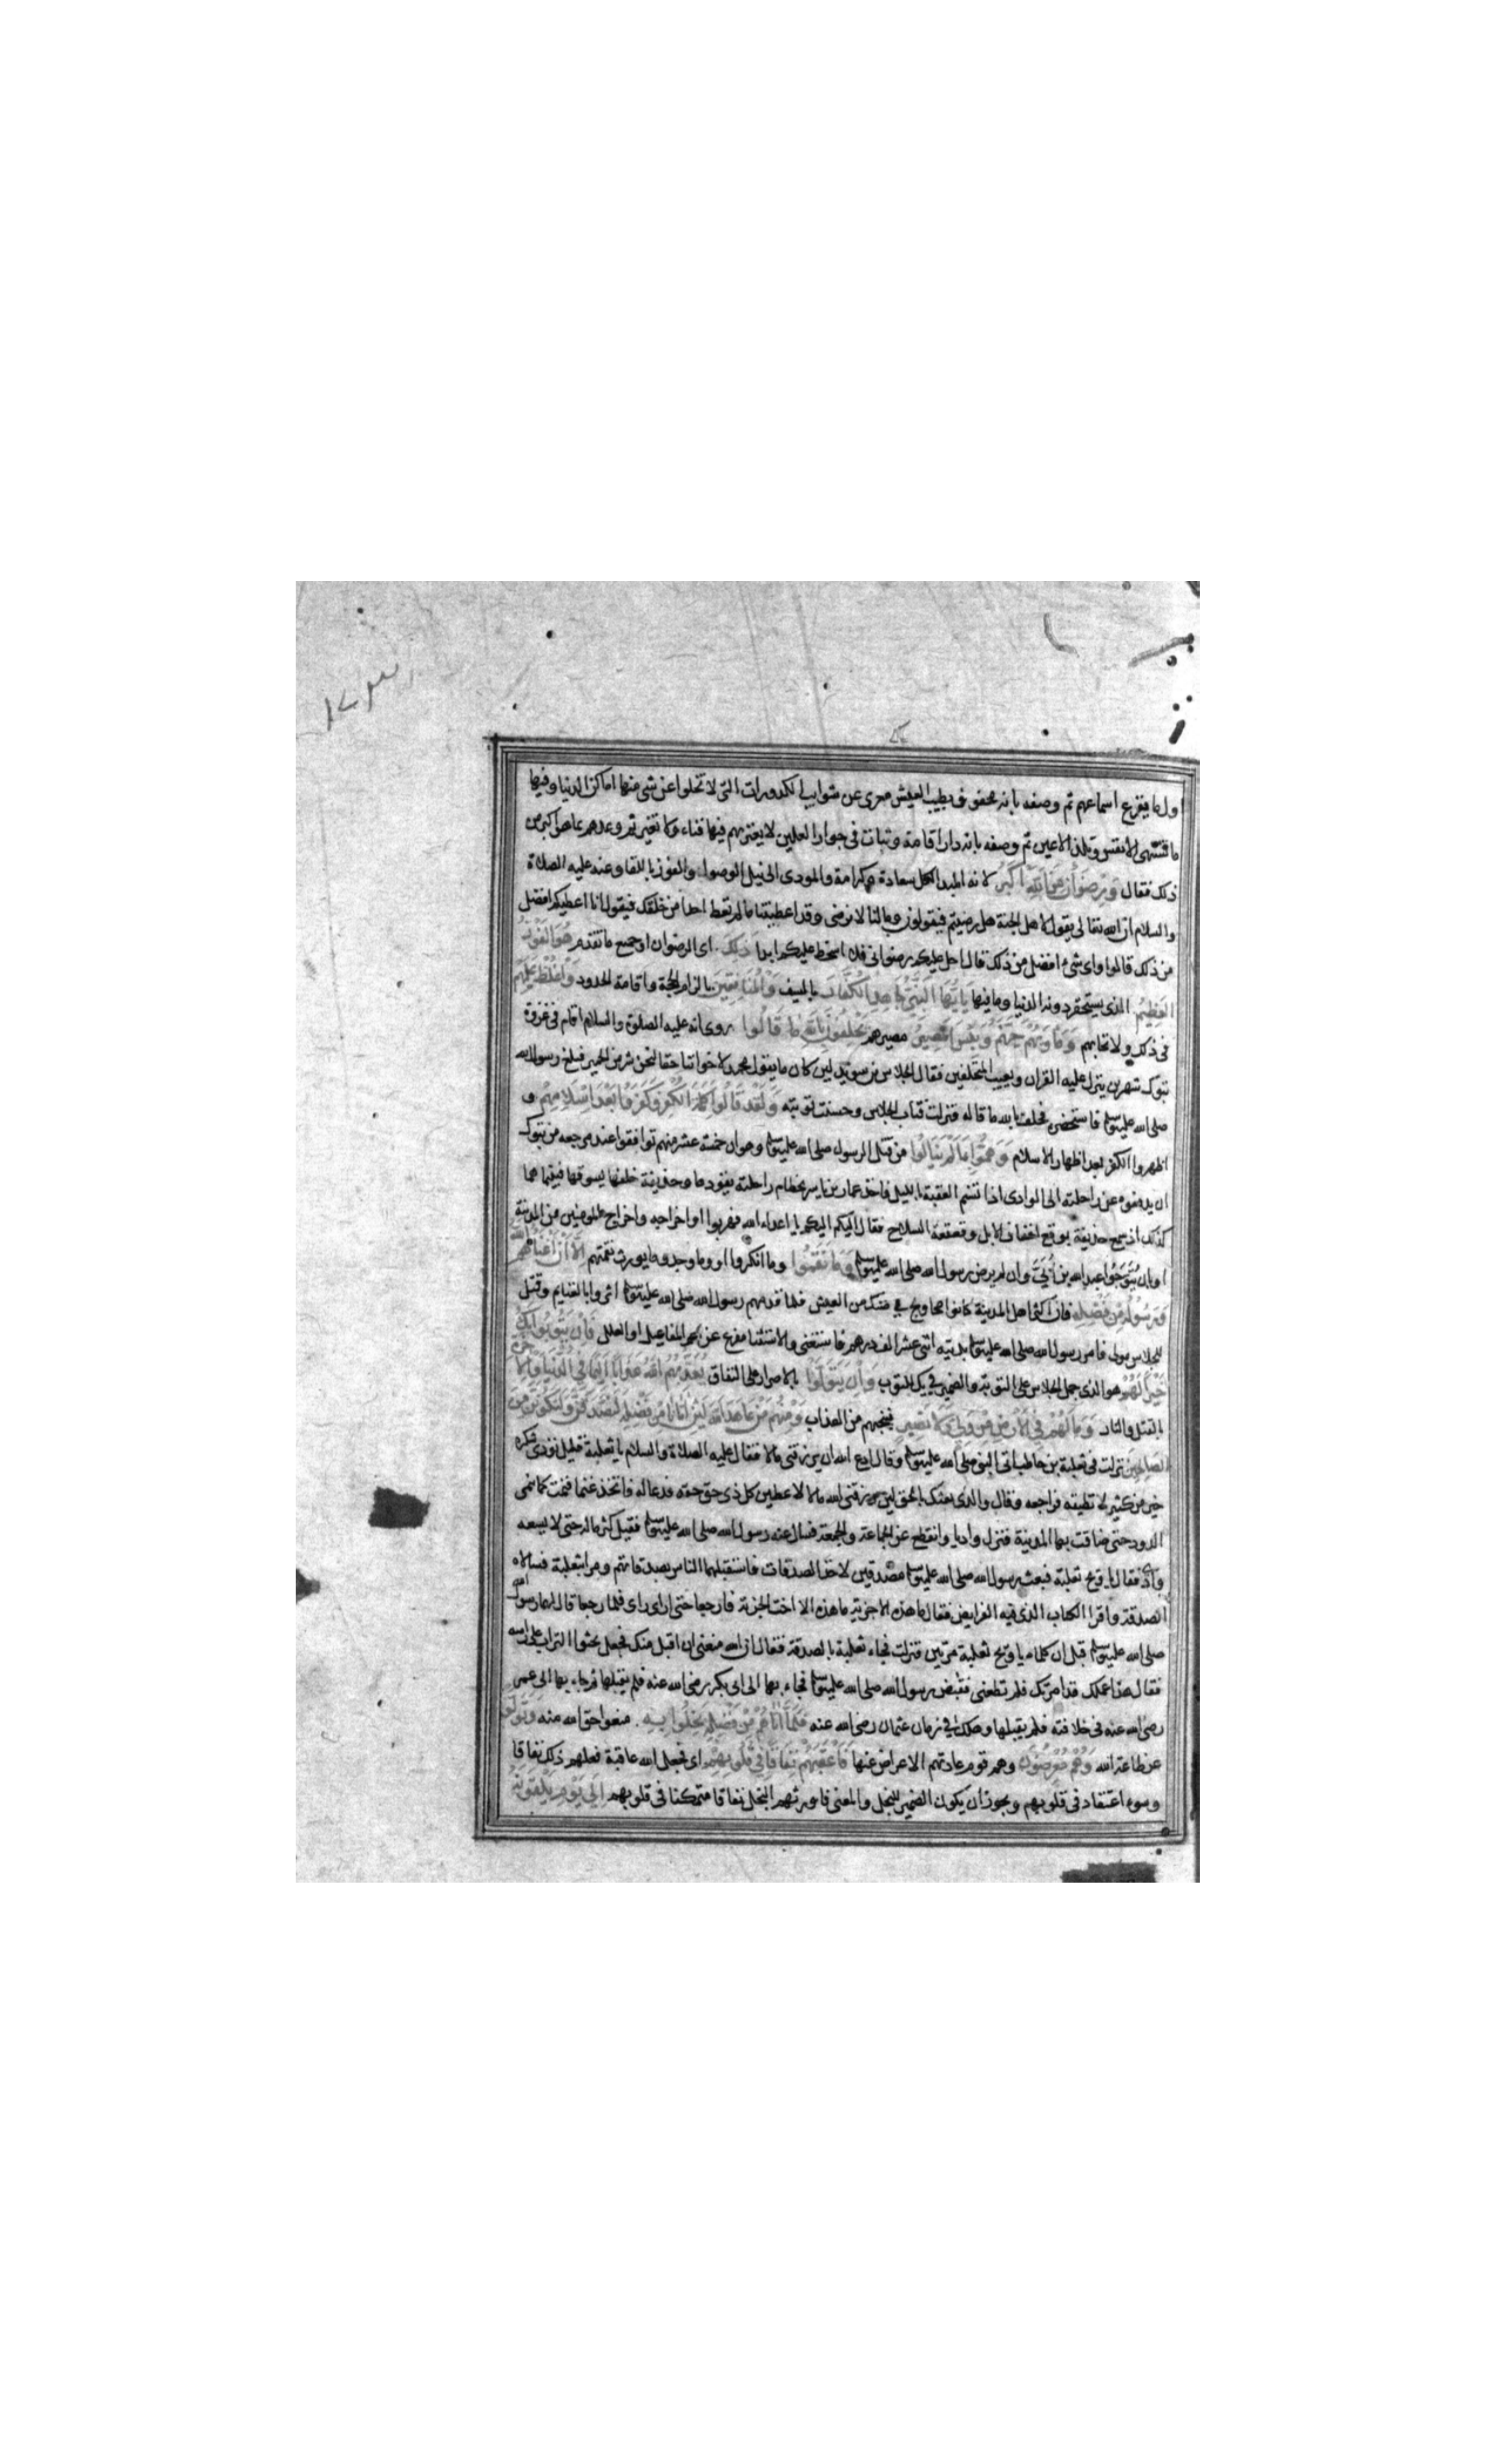 اول ما يقرع اسماعهم ثم وصفه بانه محفوف بطيب العيش معرى عن شوايب الكدورات التى لا تخلوا عن شى منها اماكن الدنيا وفيها
ما تشتهى الانفس وتلذ الاعين ثم وصفه بانه دار اقامة وثبات فى جوار العلين لا يعتريهم فيها فناء ولا تغير ثم وعدهم بما هو اكبر من
ذلك فقال وَرِضْوَانٌ مِنَ اللَّهِ أَكْبَرُ لانه المبدا لكل سعادة وكرامة والمودى الى نيل الوصول والفوز باللقا وعنه عليه الصلاة
والسلام ان الله تعالى يقول لاهل الجنة هل رضيتم فيقولون وما لنا لا نرضى وقد اعطيتنا ما لم تعط احدا من خلقك فيقول انا اعطيكم افضل
من ذلك قالوا واى شىء افضل من ذلك قال احل عليكم رضوانى فلا اسخط عليكم ابدا ذَلِكَ اى الرضوان او جميع ما تقدم هُوَ الْفَوْزُ
الْعَظِيمُ الذى يستحقر دونه الدنيا وما فيها يَا أَيُّهَا النَّبِيُّ جَاهِدِ الْكُفَّارَ بالسيف وَالْمُنَافِقِينَ بالزام الحجة واقامة الحدود وَاغْلُظْ عَلَيْهِمْ
فى ذلك ولا تحابهم وَمَأْوَيهُمْ جَهَنَّمُ وَبِئْسَ الْمَصِيرُ مصيرهم يَحْلِفُونَ بِاللَّهِ مَا قَالُوا روى انه عليه الصلوة والسلام اقام فى غزوة
تبوك شهرين ينزل عليه القران ويعيب المتخلفين فقال الجلاس بن سويد لين كان ما يقول محمد لاخواننا حقا لنحن شر من الحمير فبلغ رسول الله
صلى الله عليه وسلم فاستحضره فحلف بالله ما قاله فنزلت فتاب الجلاس وحسنت توبته وَلَقَدْ قَالُوا كَلِمَةَ الْكُفْرِ وَكَفَرُوا بَعْدَ إِسْلَامِهِمْ و
اظهروا الكفر بعد اظهار الاسلام وَهَمُّوا بِمَا لَمْ يَنَالُوا من قتل الرسول صلى الله عليه وسلم وهو ان خمسة عشر منهم توافقوا عند مرجعه من تبوك
ان يدفعوه عن راحلته الى الوادى اذا تسنم العقبة بالليل فاخذ عمار بن ياسر بخطام راحلته يقودها وحذيفة خلفها يسوقها فبينما هما
كذلك اذ سمع حذيفة بوقع اخفاف الابل وقعقعة السلاح فقال اليكم اليكم يا اعداء الله فهربوا او اخراجه واخراج المومنين من المدينة
او بان يُتَوِّجُوا عبد الله بن اُبَيّ وان لم يرض رسول الله صلى الله عليه وسلم وَمَا نَقَمُوا وما انكروا او وما وجدوا ما يورث نقمتهم إِلَّا أَنْ أَغْنَاهُمُ اللَّهُ
وَرَسُولُهُ مِنْ فَضْلِهِ فان اكثر اهل المدينة كانوا محاويج فى ضنك من العيش فلما قدمهم رسول الله صلى الله عليه وسلم اثروا بالغنايم وقتل
للجلاس مولى فامر رسول الله صلى الله عليه وسلم بديته اثنى عشر الف درهم فاستغنى والاستثنا مفرغ عن اعم المفاعيل او العلل فَإِنْ يَتُوبُوا يَكُ
خَيْرًا لَهُمْ هو الذى حمل الجلاس على التوبة والضمير فى يك للتوب وَإِنْ يَتَوَلَّوْا بالاصرار على النفاق يُعَذِّبْهُمُ اللَّهُ عَذَابًا أَلِيمًا فِي الدُّنْيَا وَالْآخِرَةِ
بالقتل والنار وَمَا لَهُمْ فِي الْأَرْضِ مِنْ وَلِيٍّ وَلَا نَصِيرٍ فينجيهم من العذاب وَمِنْهُمْ مَنْ عَاهَدَ اللَّهَ لَئِنْ آتَانَا مِنْ فَضْلِهِ لَنَصَّدَّقَنَّ وَلَنَكُونَنَّ مِنَ
الصَّالِحِينَ نزلت فى ثعلبة بن حاطب اتى النبى صلى الله عليه وسلم وقال ادع الله ان يرزقنى مالا فقال عليه الصلاة والسلام يا ثعلبة قليل تؤدى شكره
خير من كثير لا تطيقه فراجعه وقال والذى بعثك بالحق لين رزقنى الله مالا لاعطين كل ذى حق حقه فدعا له فاتخذ غنما فنمت كما ينمى
الدود حتى ضاقت بها المدينة فنزل واديا وانقطع عن الجماعة والجمعة فسال عنه رسول الله صلى الله عليه وسلم فقيل كثر ماله حتى لا يسعه
واد فقال يا ويح ثعلبة فبعث رسول الله صلى الله عليه وسلم مصدقين لاخذ الصدقات فاستقبلهما الناس بصدقاتهم ومرا بثعلبة فسالاه
الصدقة واقرا الكتاب الذى فيه الفرايض فقال ما هذه الا جزية ما هذه الا اخت الجزية فارجعا حتى ارى راى فلما رجعا قال لهما رسول الله
صلى الله عليه وسلم قبل ان يكلماه يا ويح ثعلبة مرتين فنزلت فجاء ثعلبة بالصدقة فقال ان الله منعنى ان اقبل منك فجعل يحثوا التراب على راسه
فقال هذا عملك قد امرتك فلم تطعنى فقبض رسول الله صلى الله عليه وسلم فجاء بها الى ابى بكر رضى الله عنه فلم يقبلها ثم جاء بها الى عمر
رضى الله عنه فى خلافته فلم يقبلها وهلك فى زمان عثمان رضى الله عنه فَلَمَّا آتَاهُمْ مِنْ فَضْلِهِ بَخِلُوا بِهِ منعوا حق الله منه وَتَوَلَّوْا
عن طاعة الله وَهُمْ مُعْرِضُونَ وهم قوم عادتهم الاعراض عنها فَأَعْقَبَهُمْ نِفَاقًا فِي قُلُوبِهِمْ اى فجعل الله عاقبة فعلهم ذلك نفاقا
وسوء اعتقاد فى قلوبهم ويجوز ان يكون الضمير للبخل والمعنى فاورثهم البخل نفاقا متمكنا فى قلوبهم إِلَى يَوْمِ يَلْقَوْنَهُ